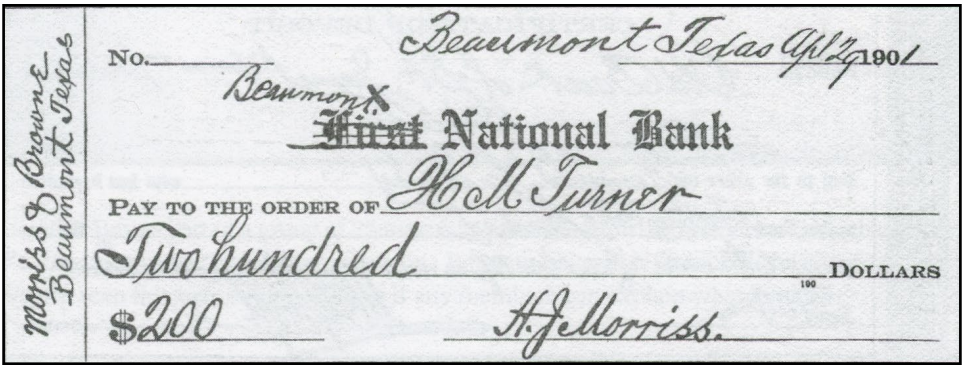 Morriss & Browne
Beaumont Texas
No. Beaumont Texas Apl 29 1901
Beaumont X
First National Bank
PAY TO THE ORDER OF H M Turner
Two hundred DOLLARS
100
$200 A. J. Morriss.